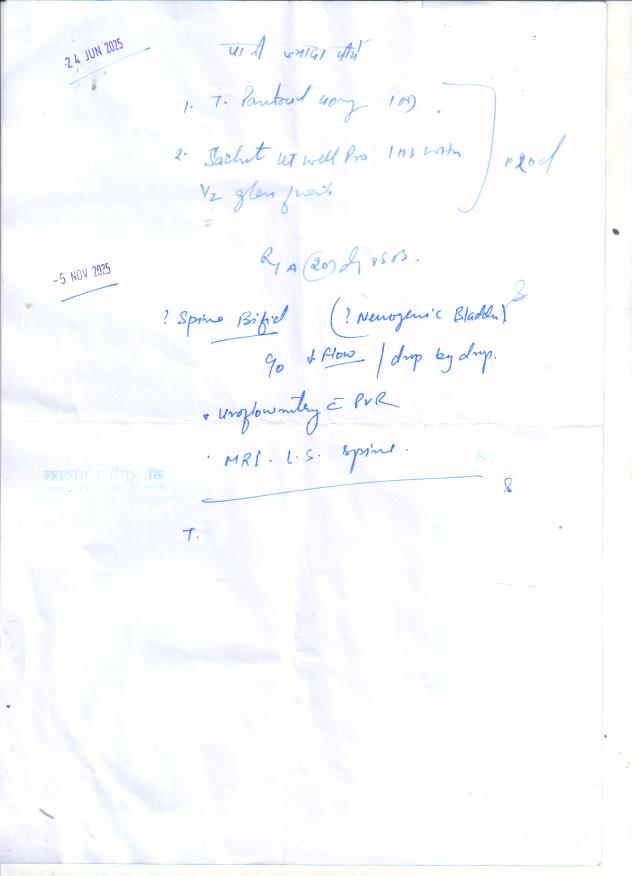 24 JUN 2025
पानी ज्यादा पीये
1. T. Pantocid 40mg 1 OD
2. Sachet UT well Pro 1 HS with
1/2 glass of water
x 20d
R/A (20) dys SOS.
-5 NOV 2025
? Spina Bifid (? Neurogenic Bladder)
c/o ↓ Flow / drop by drop.
• Uroflowmetry c̄ PVR
• MRI. L.S. spine.
T.